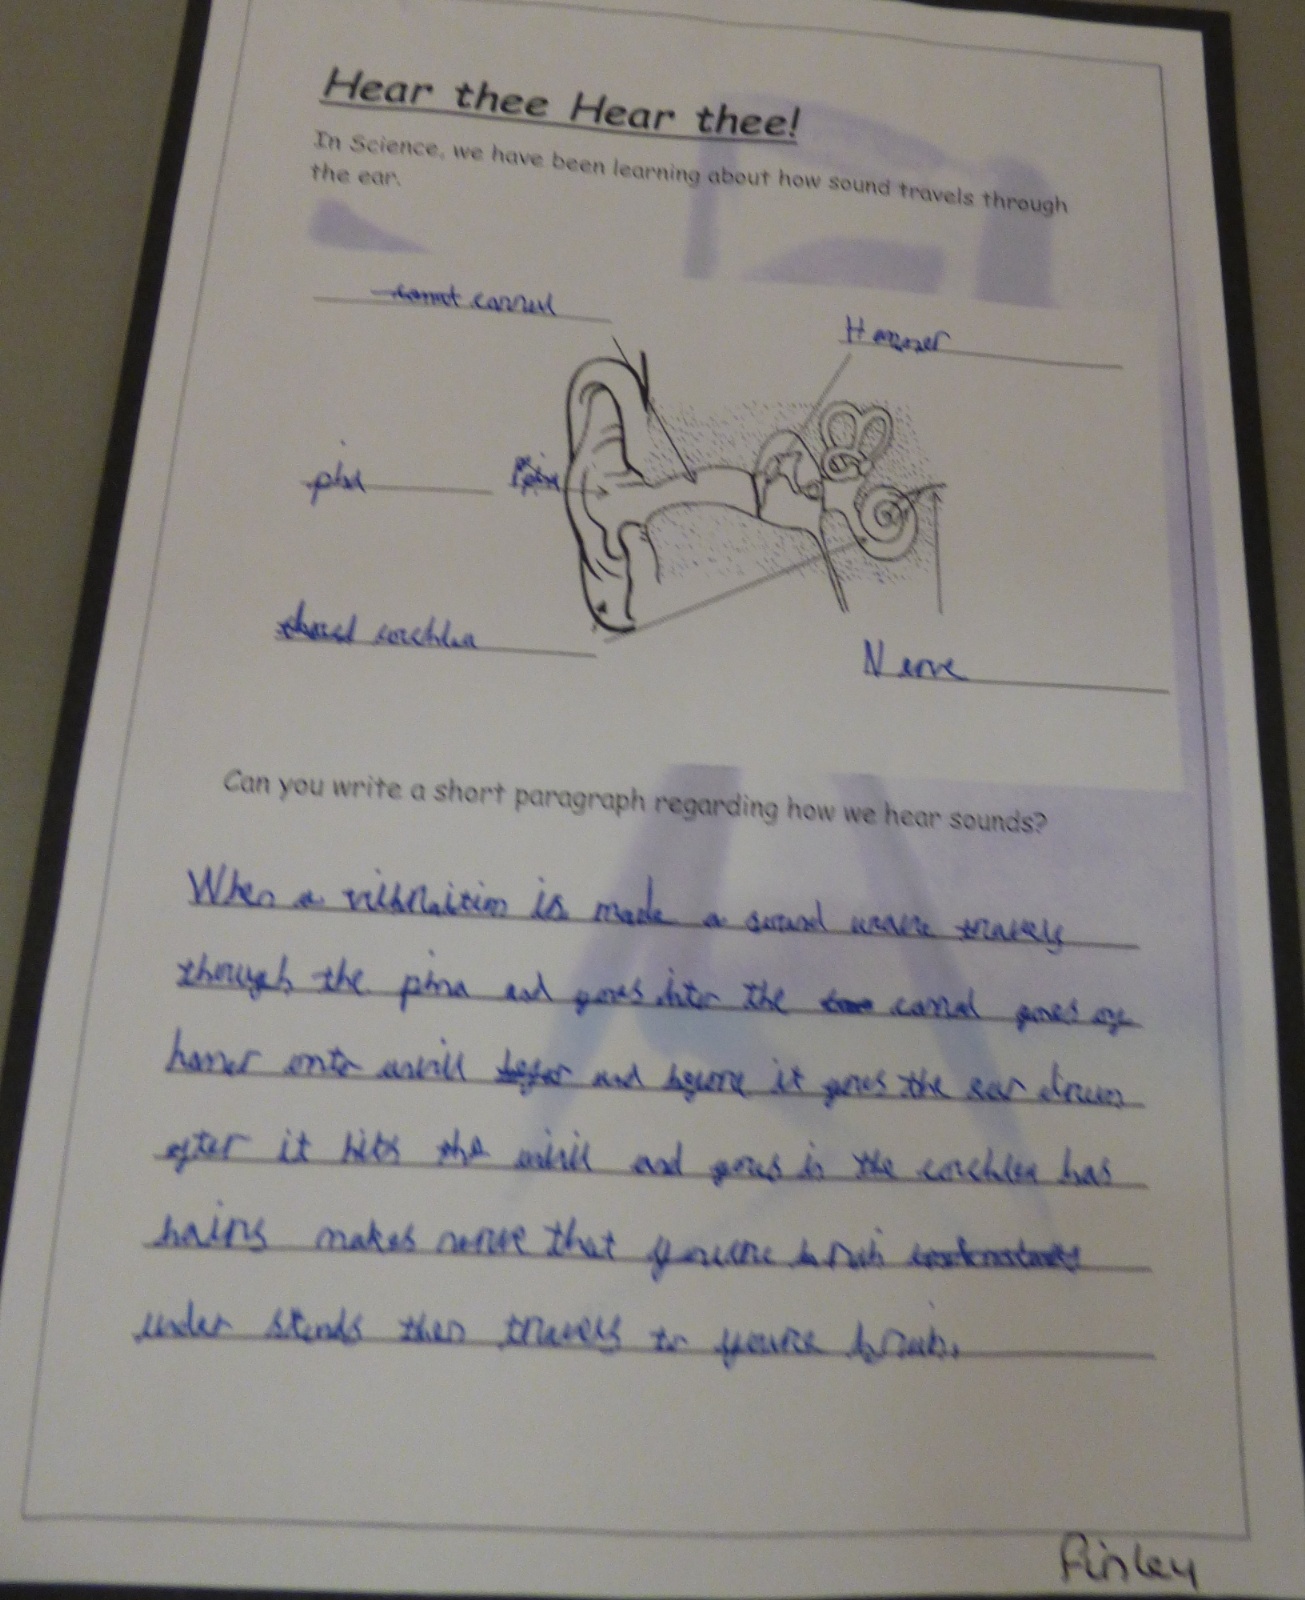 Hear thee Hear thee!
In Science, we have been learning about how sound travels through
the ear.
cannul
Hammer
pina
cochlea
Nerve
Can you write a short paragraph regarding how we hear sounds?
When a vibraition is made a sound wave travels
though the pina and goes into the canal goes
onto anvill and before it goes the ear drum
after it hits the anvill and goes in the cochlea has
hairs makes nerve that youre brain
under stands then travels to youre brain.
Finley